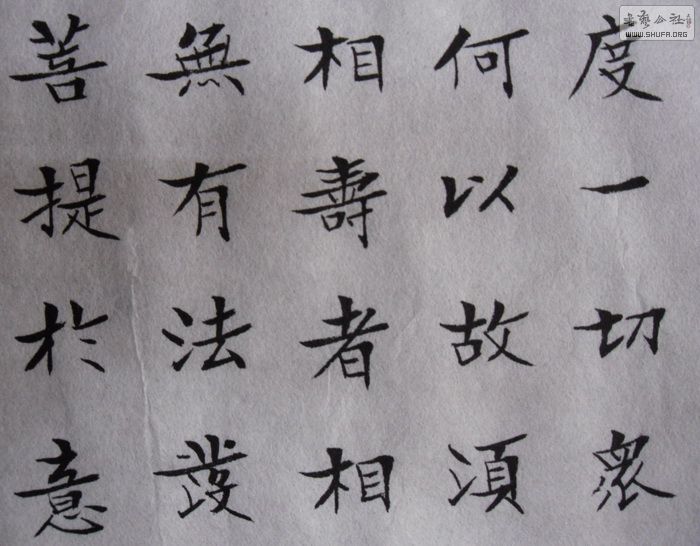 度一切眾
何以故湏
相壽者相
無有法發
菩提於意
书藝公社
WWW.SHUFA.ORG